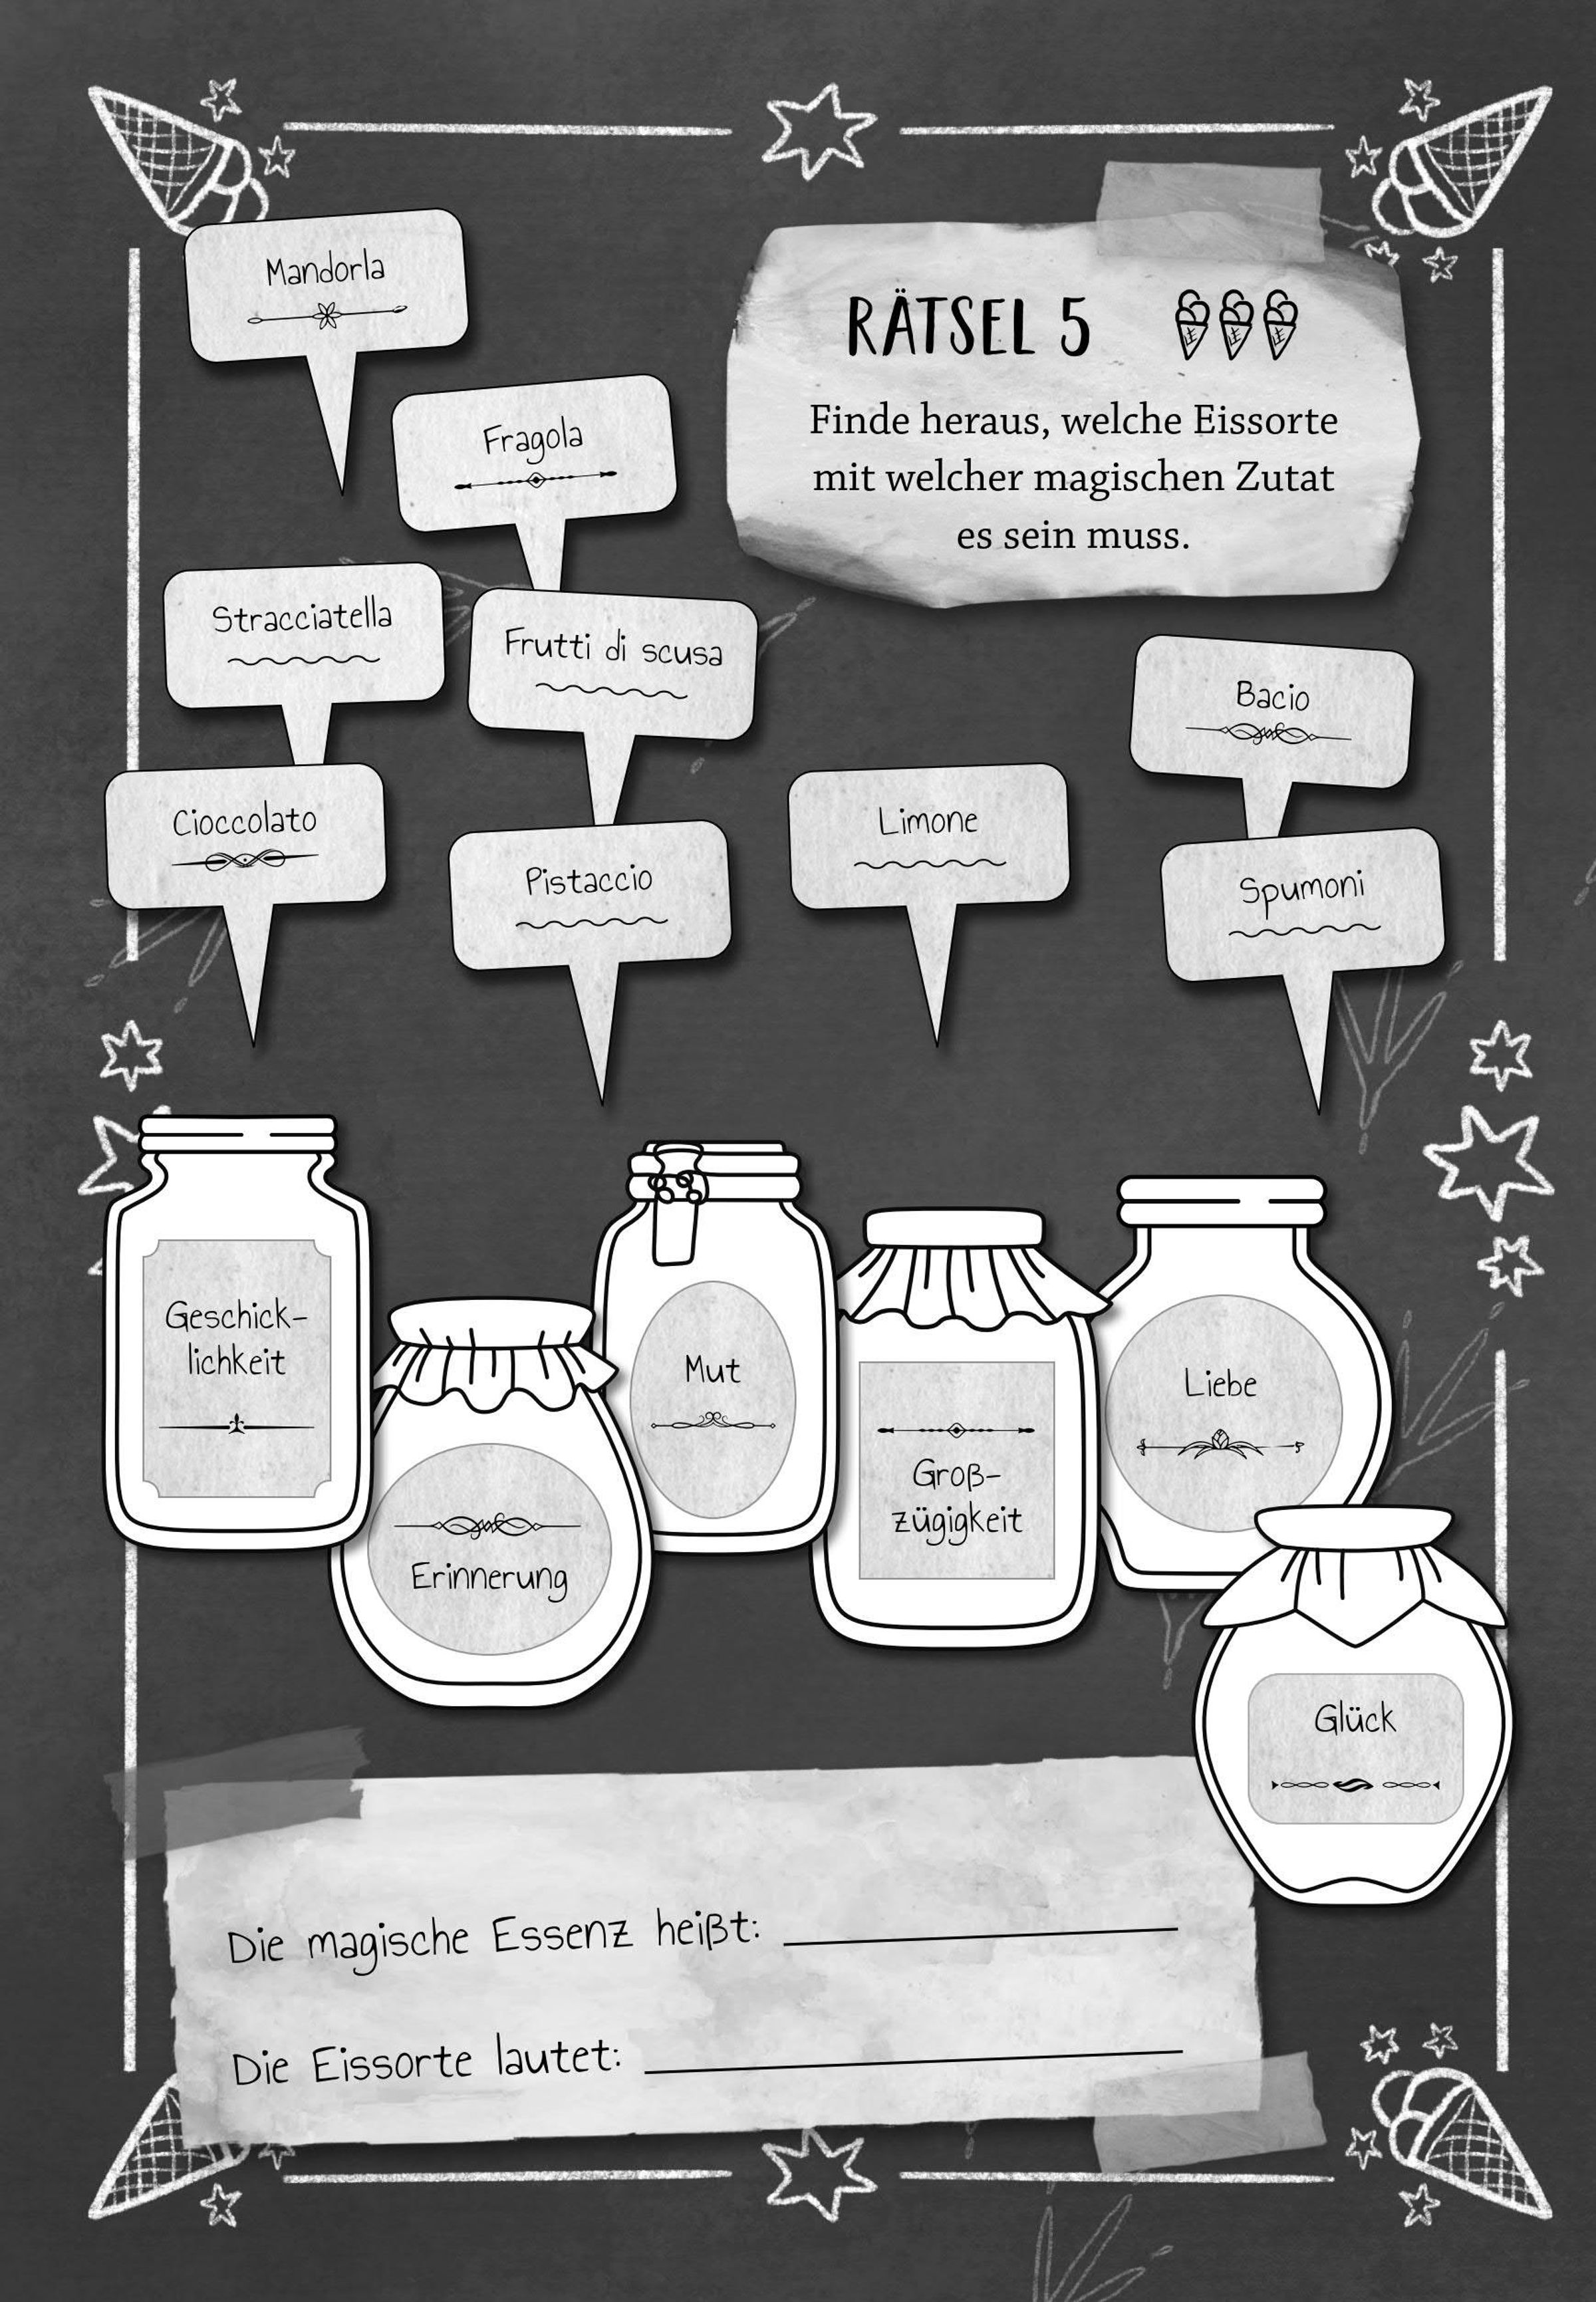 Mandorla
Fragola
RÄTSEL 5
Finde heraus, welche Eissorte
mit welcher magischen Zutat
es sein muss.
Stracciatella
Frutti di scusa
Bacio
Cioccolato
Pistaccio
Limone
Spumoni
Geschick-
lichkeit
Erinnerung
Mut
Groß-
zügigkeit
Liebe
Glück
Die magische Essenz heißt:
Die Eissorte lautet: